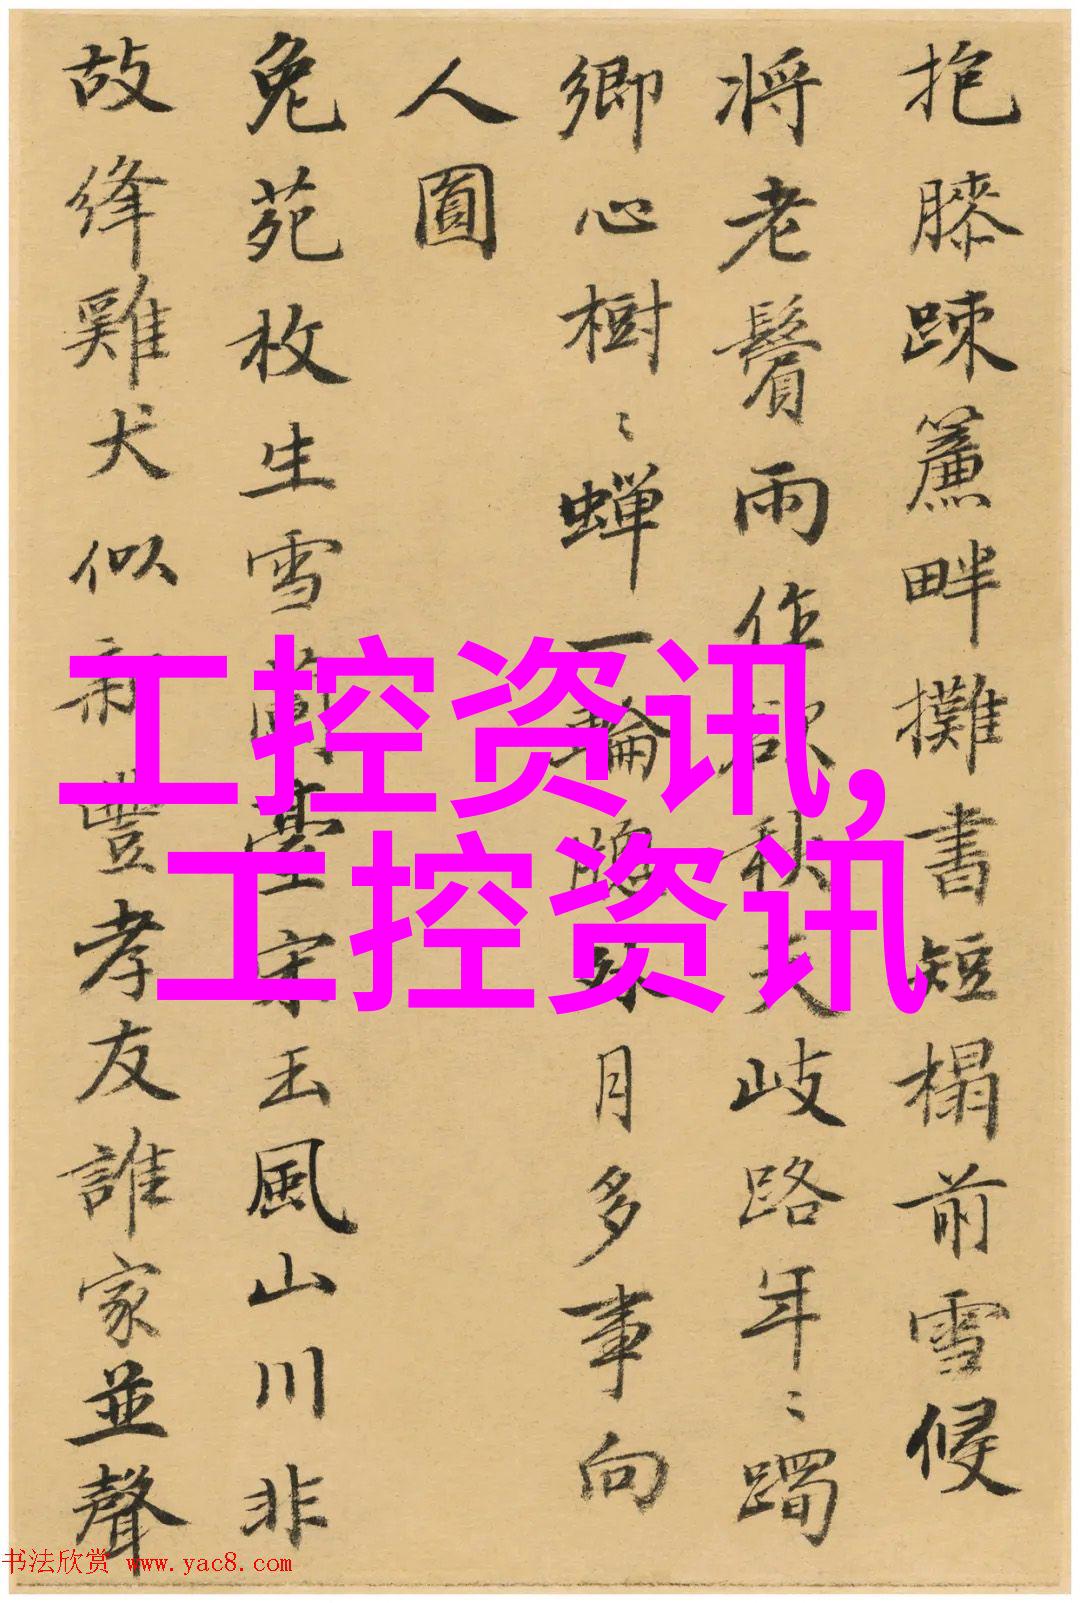 抱膝踈簾畔攤書短榻前雪侵
將老鬢雨作欲秋天岐路年〻躅
鄉心樹〻蟬一輪臨水月多事向
人圓
兔苑枚生雪蘭臺宋玉風山川非
故絳雞犬似新豐孝友誰家並聲
工控资讯,
工控资讯
书法欣赏 www.yac8.com